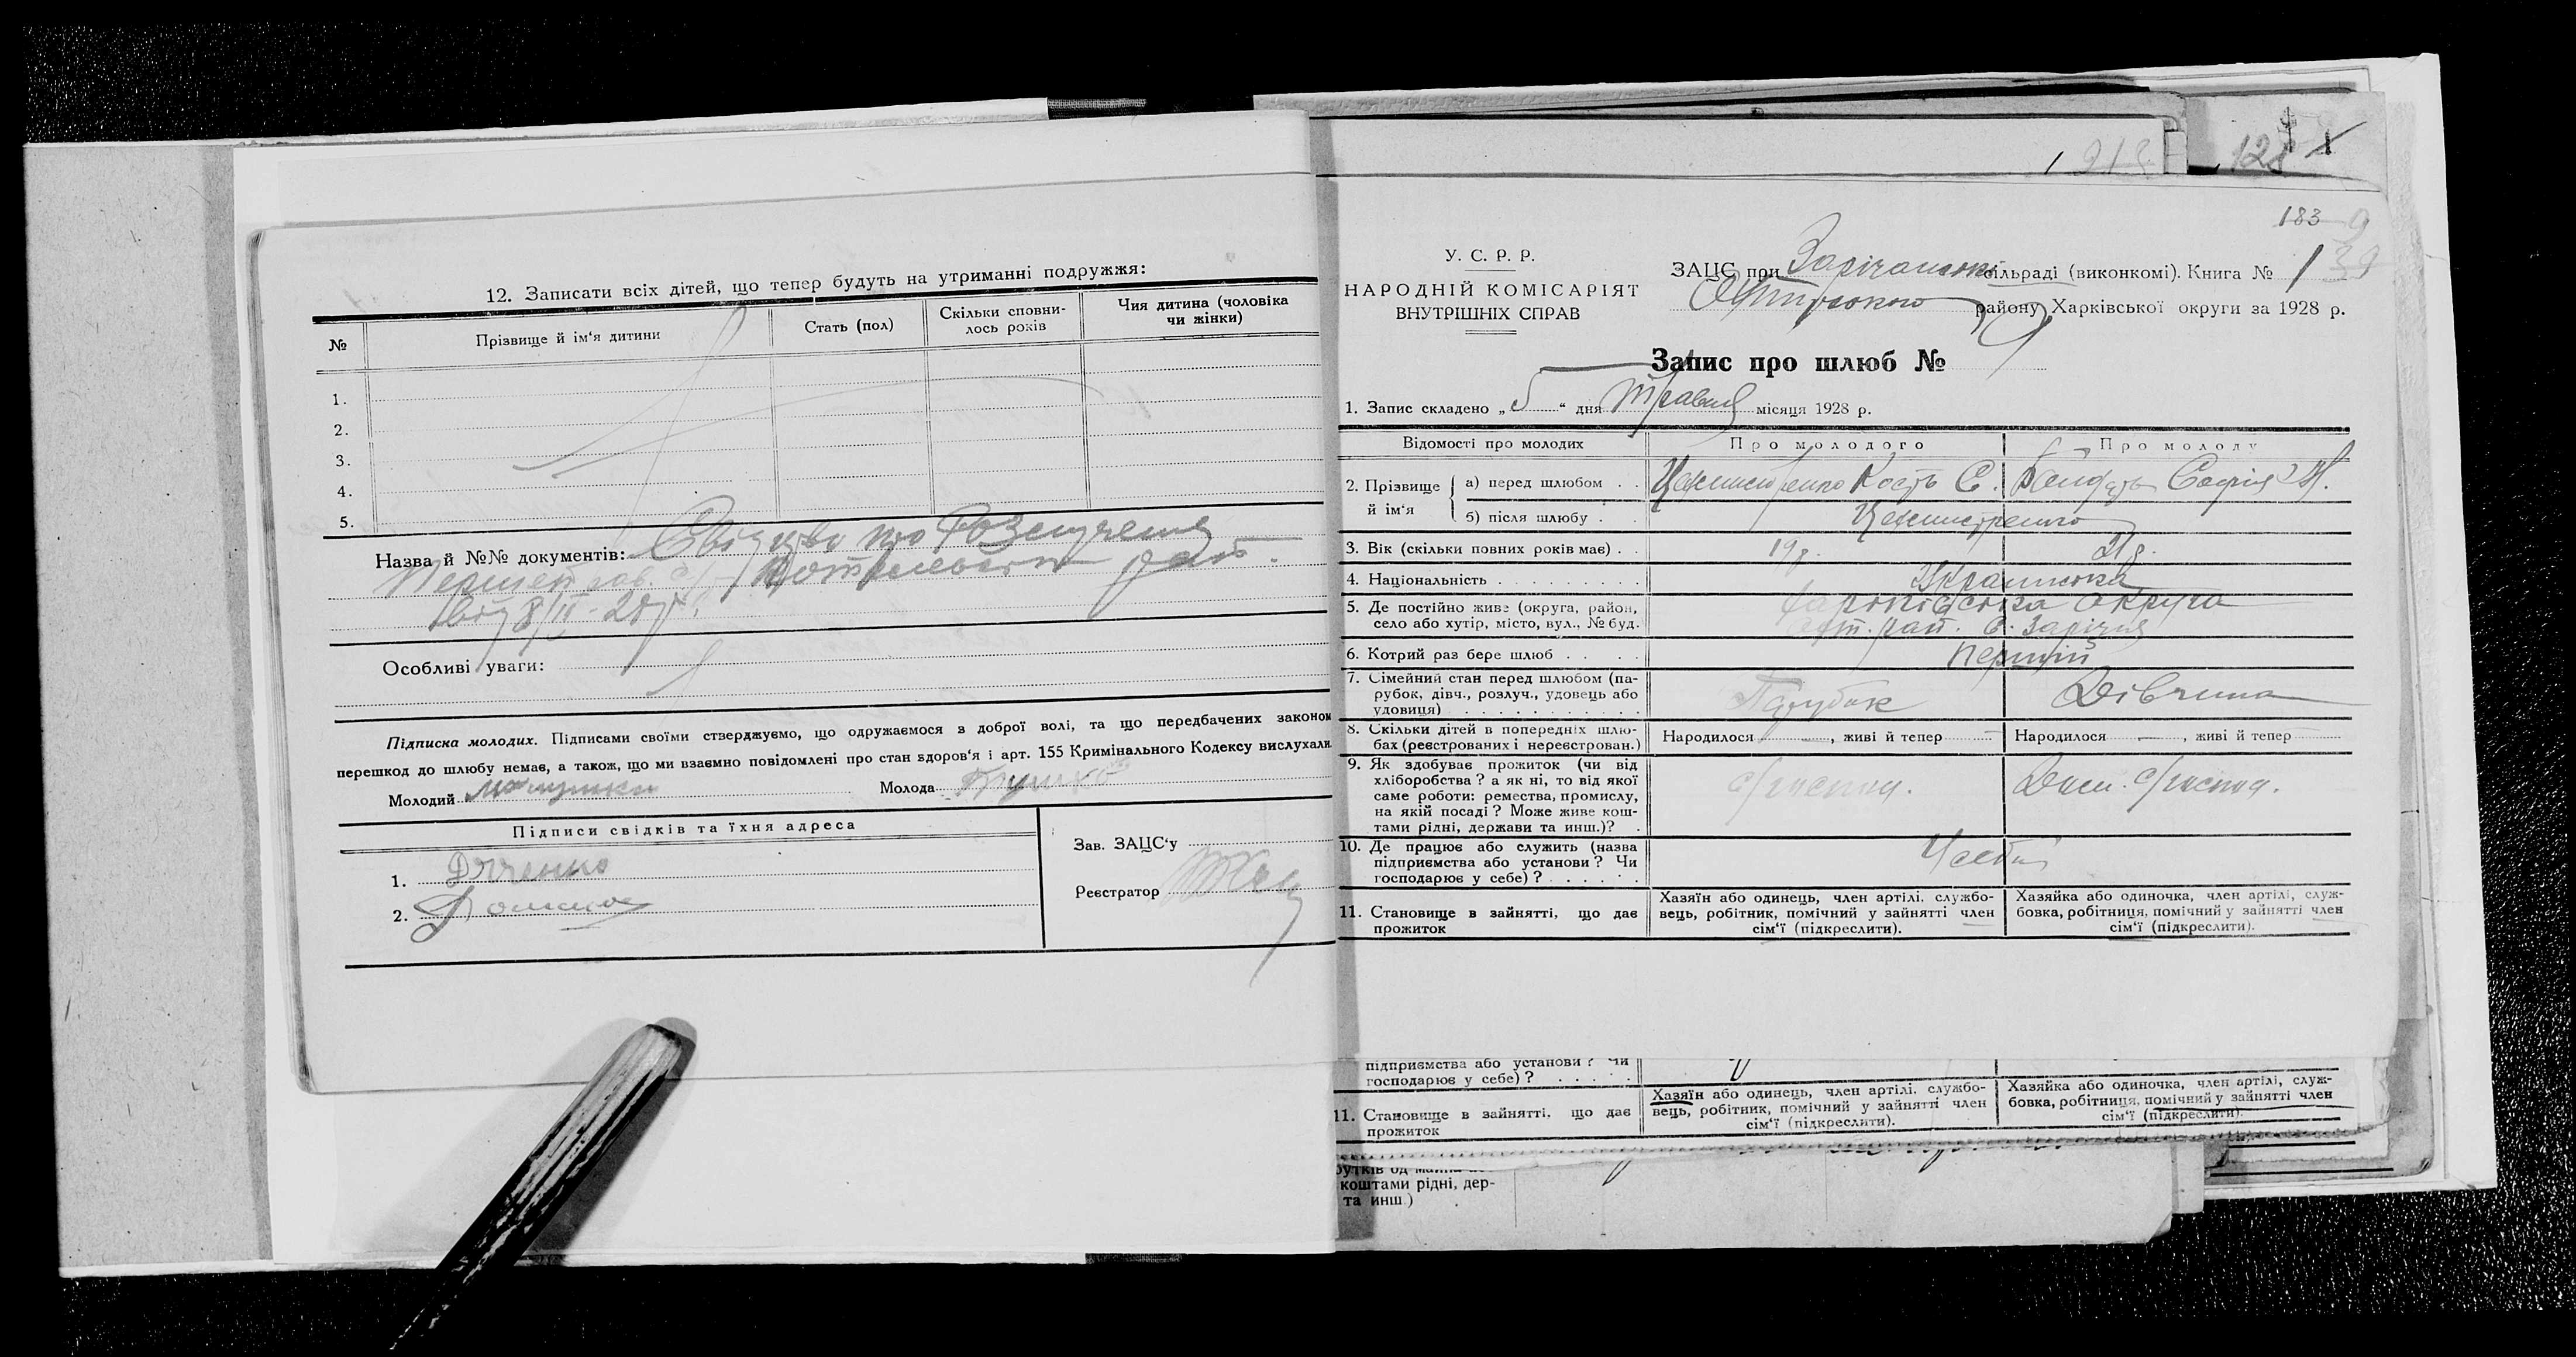 12. Записати всіх дітей, що тепер будуть на утриманні подружжя:
№
Прізвище й ім'я дитини
Стать (пол)
Скільки сповни-
лось років
Чия дитина (чоловіка
чи жінки)
1.
2.
3.
4.
5.
Назва й №№ документів: про Розлучення
від 8/II-28 р.
Особливі уваги:
Підписка молодих. Підписами своїми стверджуємо, що одружаємося з доброї волі, та що передбачених законом
перешкод до шлюбу немає, а також, що ми взаємно повідомлені про стан здоров'я і арт. 155 Кримінального Кодексу вислухали.
Молодий
Молода
Підписи свідків та їхня адреса
1. Дяченко
2.
Зав. ЗАЦС'у
Реєстратор
1
128 X
183
У. С. Р. Р.
НАРОДНІЙ КОМІСАРІЯТ
ВНУТРІШНІХ СПРАВ
ЗАЦС при Зарічанській сільраді (виконкомі). Книга № 1 39
району Харківської округи за 1928 р.
Запис про шлюб № 9
1. Запис складено „5“ дня Травня місяця 1928 р.
Відомості про молодих
Про молодого
Про молоду
2. Прізвище й ім'я
а) перед шлюбом . .
Кость Є.
Софія
б) після шлюбу .
3. Вік (скільки повних років має) . .
19 р.
21 р.
4. Національність
Українська
5. Де постійно живе (округа, район,
село або хутір, місто, вул., № буд.
Харківська округа
рай. с. Зарічня
6. Котрий раз бере шлюб
Перший
7. Сімейний стан перед шлюбом (па-
рубок, дівч., розлуч., удовець або
удовиця)
Парубок
Дівчина
8. Скільки дітей в попередніх шлю-
бах (реєстрованих і нереєстрован.)
Народилося , живі й тепер —
Народилося — , живі й тепер
9. Як здобуває прожиток (чи від
хліборобства? а як ні, то від якої
саме роботи: ремества, промислу,
на якій посаді? Може живе кош-
тами рідні, держави та инш.)?
с/господ.
Дом. с/господ.
10. Де працює або служить (назва
підприємства або установи? Чи
господарює у себе)?
11. Становище в зайнятті, що дає
прожиток
Хазяїн або одинець, член артілі, службо-
вець, робітник, помічний у зайнятті член
сім'ї (підкреслити).
Хазяйка або одиночка, член артілі, служ-
бовка, робітниця, помічний у зайнятті член
сім'ї (підкреслити).
підприємства або установи? Чи
господарює у себе)?
11. Становище в зайнятті, що дає
прожиток
Хазяїн або одинець, член артілі, службо-
вець, робітник, помічний у зайнятті член
сім'ї (підкреслити).
Хазяйка або одиночка, член артілі, служ-
бовка, робітниця, помічний у зайнятті член
сім'ї (підкреслити).
коштами рідні, дер-
та инш.)